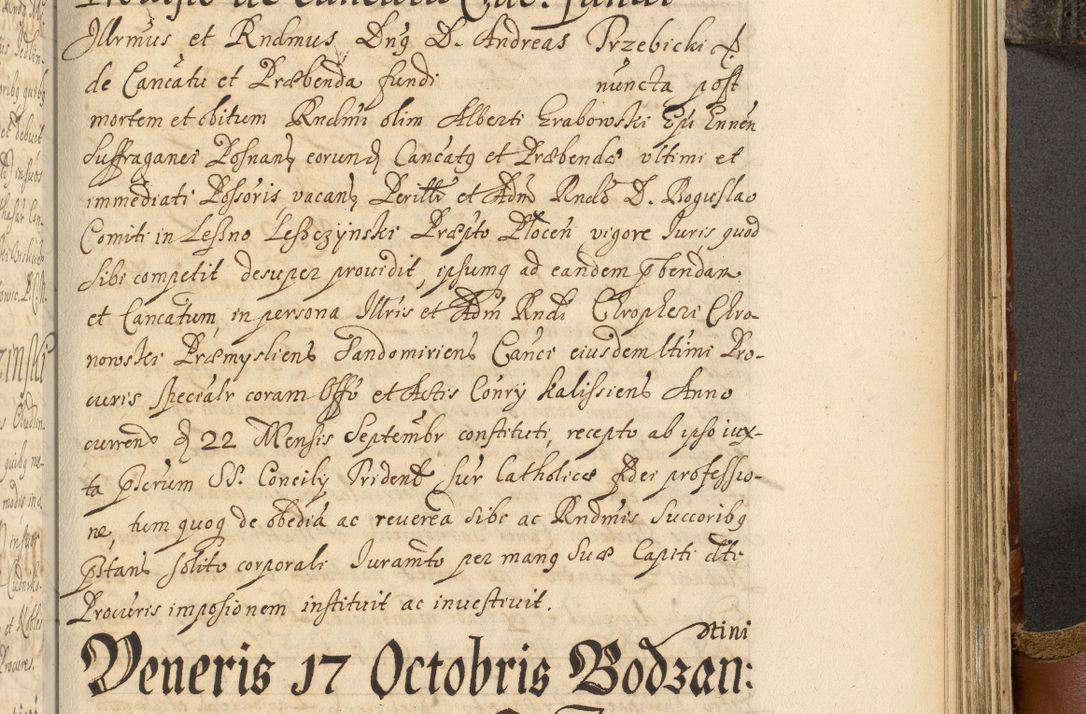 Illrmus et Rndmus Dnus D. Andreas Trzebicki Epus
de Cancatu et Præbenda fundi nuncta post
mortem et obitum Rndmi olim Alberti Grabowski Epi Ennen
Suffraganei Posnans eorund Cancatq et Præbendæ vltimi et
immediati Possoris vacans, Perillr et Adm Rndo D. Boguslao
Comiti in Leszno Leszczynski Præpto Plocen vigore Iuris quod
sibi competit desuper providit, ipsumq ad eandem pbendam
et Cancatum, in persona Illris et Adm Rndi Chrophori Chro-
nowski Præmysliens Sandomiriens Cance eiusdem ltimi Pro-
curis specialr coram Offo et Actis Conry Kalissiens Anno
currend d 22 Mensis Septembr constituti, recepto ab ipso iux-
ta pscrum SS. Concily Trident sur Catholicæ fidei professio-
ne, tum quoq de obedia ac reverea sibi ac Rndmis Succoribq
pstans solito corporali Iuramto per manq suæ Capiti dti
Procuris imposionem instituit ac investivit.
Veneris 17 Octobris Bodzan:
tini